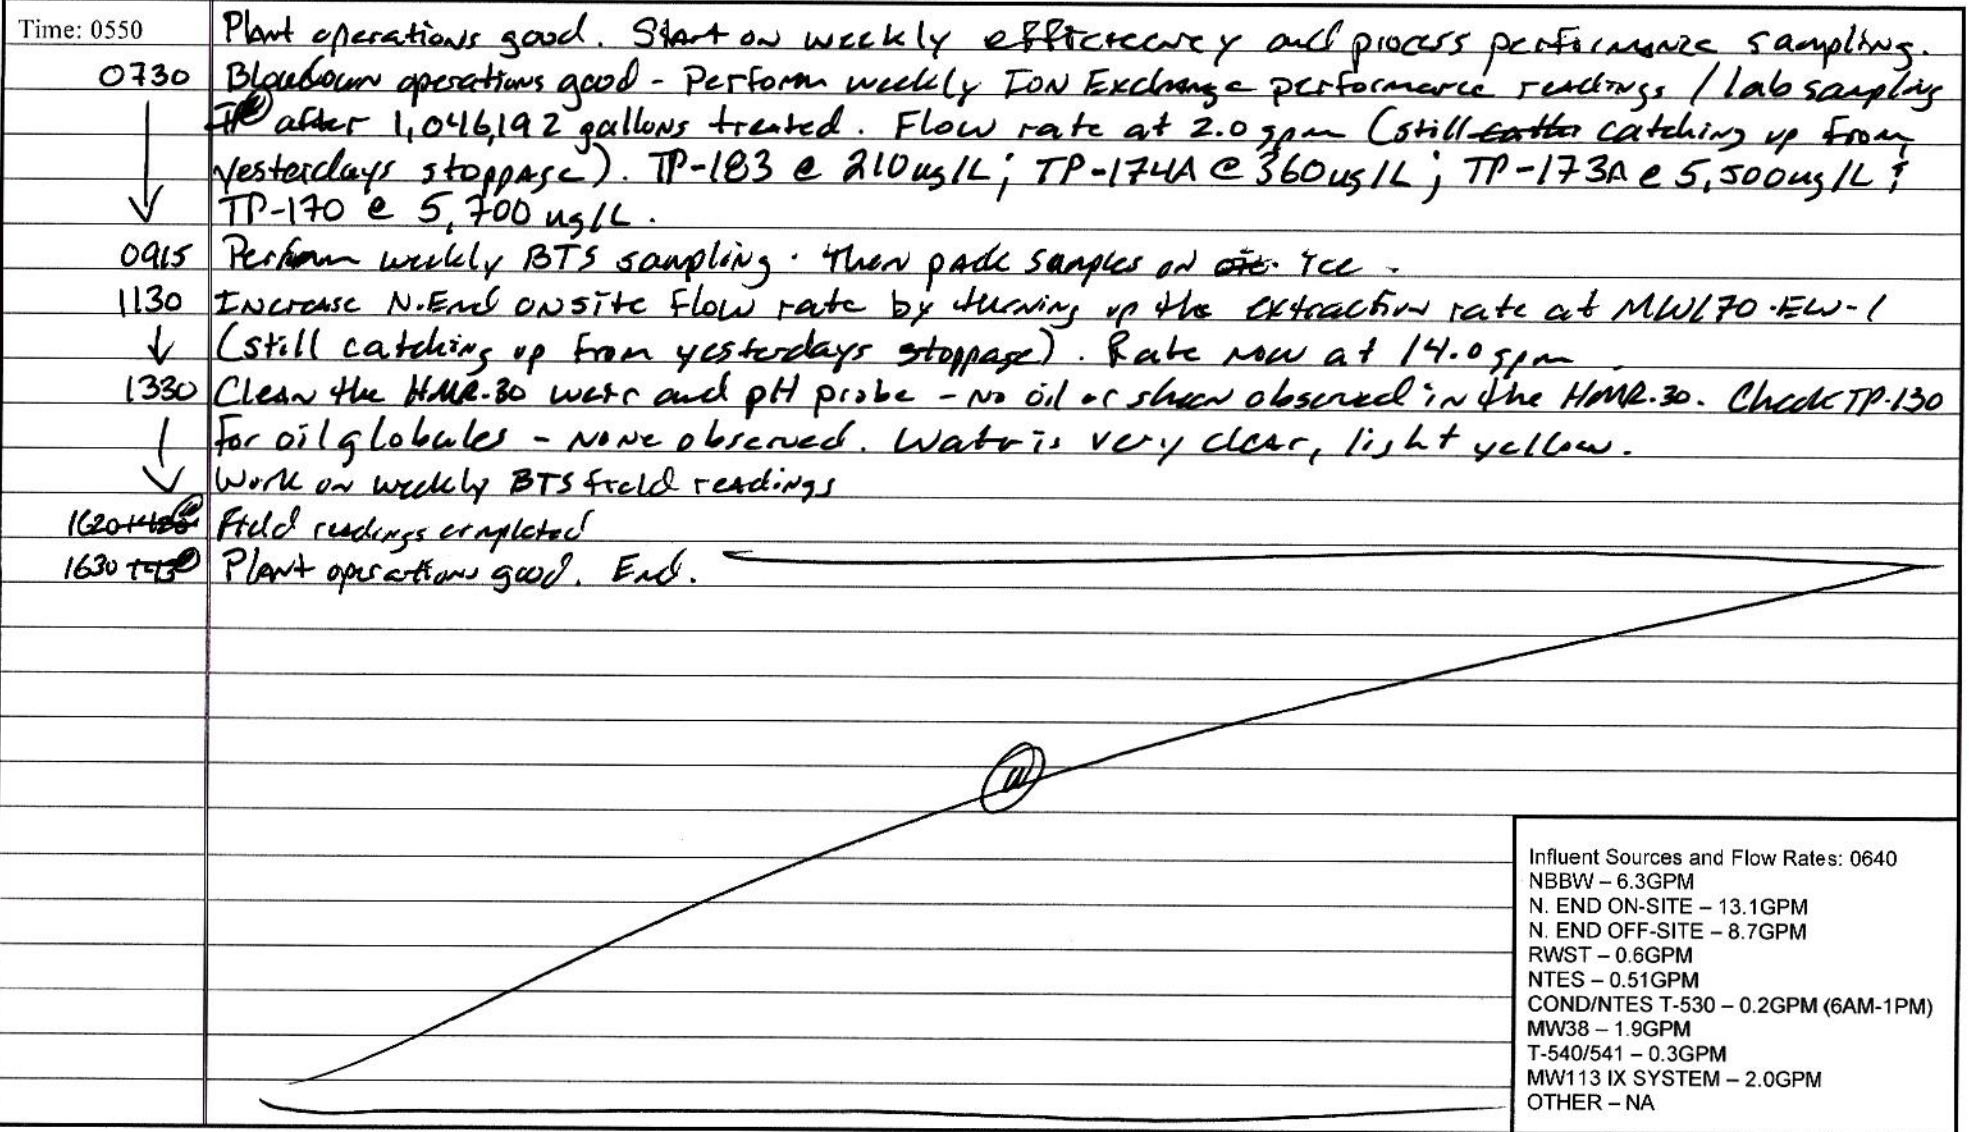 Time: 0550 Plant operations good. Start on weekly efficiency and process performance sampling.
0730 Blowdown operations good - Perform weekly Ion Exchange performance readings / lab sampling
after 1,046,192 gallons treated. Flow rate at 2.0 gpm (still catching up from
yesterdays stoppage). TP-183 @ 210ug/L; TP-174A @ 360ug/L; TP-173A @ 5,500ug/L &
TP-170 @ 5,700 ug/L.
0915 Perform weekly BTS sampling. Then pack samples on ice.
1130 Increase N.End onsite flow rate by turning up the extraction rate at MW170-EW-1
(still catching up from yesterdays stoppage). Rate now at 14.0 gpm
1330 Clean the HMR-30 weir and pH probe - No oil or sheen observed in the HMR-30. Check TP-130
for oil globules - None observed. Water is very clear, light yellow.
Work on weekly BTS field readings
1620 Field readings completed
1630 Plant operations good. End.
Influent Sources and Flow Rates: 0640
NBBW – 6.3GPM
N. END ON-SITE – 13.1GPM
N. END OFF-SITE – 8.7GPM
RWST – 0.6GPM
NTES – 0.51GPM
COND/NTES T-530 – 0.2GPM (6AM-1PM)
MW38 – 1.9GPM
T-540/541 – 0.3GPM
MW113 IX SYSTEM – 2.0GPM
OTHER – NA